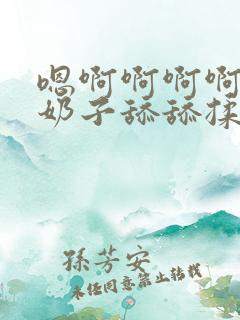 嗯啊啊啊啊
奶子舔舔揉
孫芳安
未经同意禁止转载